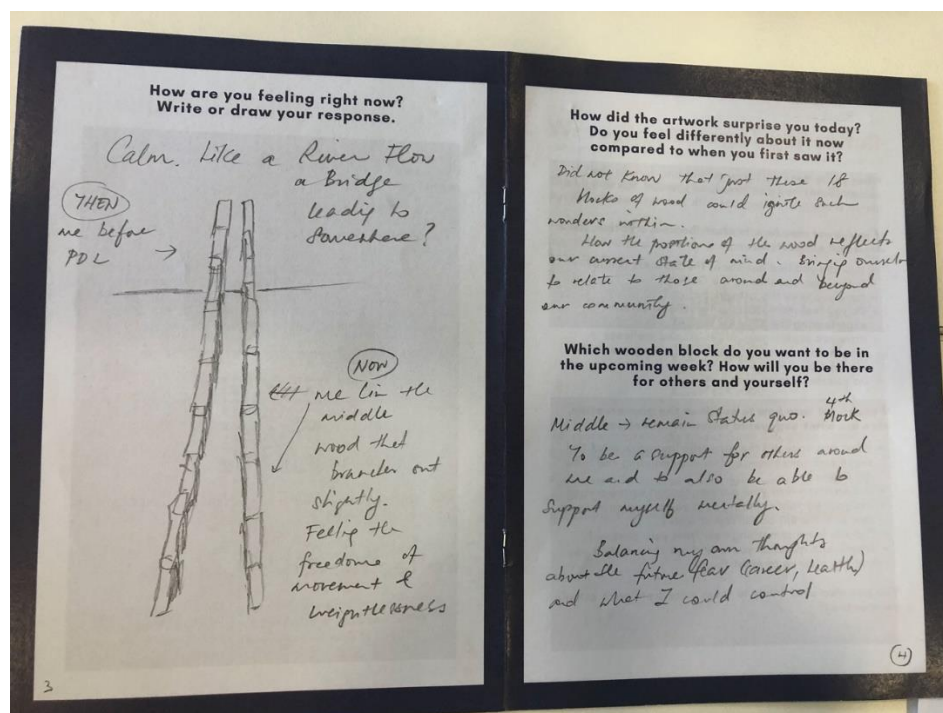 How are you feeling right now?
Write or draw your response.
Calm. Like a River Flow
a Bridge
leading to
somewhere?
THEN
me before
PDL
NOW
me in the
middle
wood that
branches out
slightly.
Feeling the
freedom of
movement &
weightlessness
3
How did the artwork surprise you today?
Do you feel differently about it now
compared to when you first saw it?
Did not know that just these 18
blocks of wood could ignite such
wonders within.
How the positions of the wood reflects
our current state of mind. Bringing ourselves
to relate to those around and beyond
our community.
Which wooden block do you want to be in
the upcoming week? How will you be there
for others and yourself?
Middle → remain status quo. 4th block
To be a support for others around
me and to also be able to
support myself mentally.
Balancing my own thoughts
about the future fear (career, health)
and what I could control
4